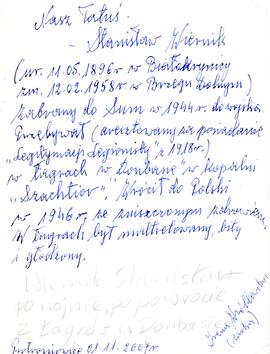 Nasz Tatuś -
- Stanisław Wiernik
(ur. 11.05.1896r w Białokrynicy
zm. 12.02.1958r w Brzegu Dolnym)
zabrany do Sum w 1944r. do wojska
Przebywał (aresztowany za posiadanie
„Legitymacji Legionisty" z 1918r.)
w łagrach w „Donbasie" w kopalni
„Szachtior". Wrócił do Polski
w 1946r. ze zniszczonym zdrowiem.
W łagrach był maltretowany, bity
i głodzony.
Wiernik Stanisław
po wojnie, po powrocie
z łagrów w Donbasie
01.11.2007r.
(córka)